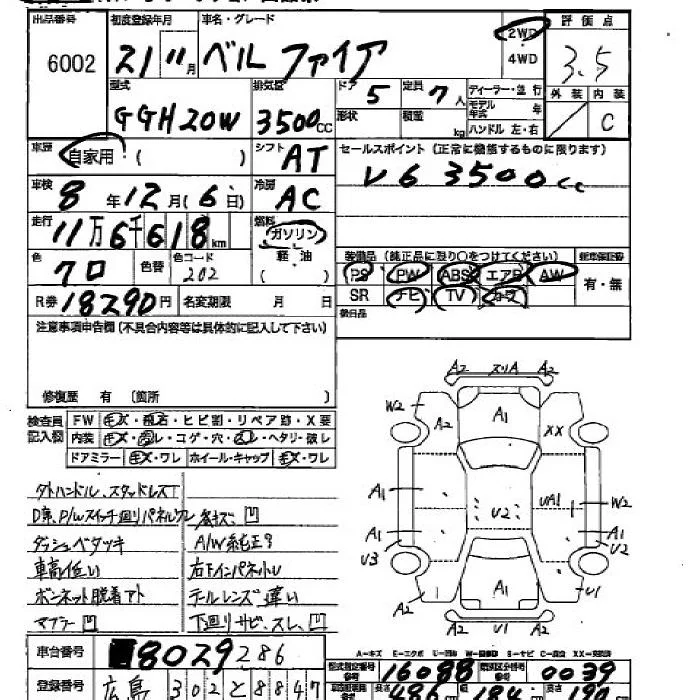 出品番号 初度登録年月 車名・グレード 評価点
6002 21 11月 ベルファイア 2WD 3.5
4WD
型式 排気量 ドア 定員 ディーラー・並行 外装 内装
GGH20W 3500cc 5 7人 モデル年式 年 C
形状 積載 kg ハンドル 左・右
車歴 自家用・( ) シフト AT セールスポイント(正常に機能するものに限ります)
車検 8年12月(6日) 冷房 AC V6 3500cc
走行 11万6千618km 燃料 ガソリン
軽・油
( )
装備品(純正品に限り○をつけてください) 新車保証書
色 クロ 色替 色コード 202 PS PW ABS エアB AW 有・無
R券 18290円 名変期限 月 日 SR ナビ TV カワ
後日品
注意事項申告欄(不具合内容等は具体的に記入して下さい)
修復歴 有(箇所 )
検査員記入欄 FW キズ・飛石・ヒビ割・リペア跡・X要
内装 キズ・汚レ・コゲ・穴・スレ・ヘタリ・破レ
ドアミラー キズ・ワレ ホイール・キャップ キズ・ワレ
A2 スリA A2
W2 A2 A1 XX
A1 U2 UA1 W2
A1 A1
U3 U2
A1 U1
A2 A2 U1 A2
タトハンドル、スタッドレスT
D席、P/Wスイッチ回りパネルワレ キズ、凹
ダッシュベタツキ A/W純正?
車高低い 右下インパネトレ
ボンネット脱着アト テールレンズ違い
マフラー凹 下回りサビ、スレ、凹
A=キズ E=エクボ U=凹 W=補修跡 S=サビ C=腐食 XX=交換済
車台番号 8029286 型式指定番号 16088 類別区分番号 0039
登録番号 広島 302 と 8847 486 184 190